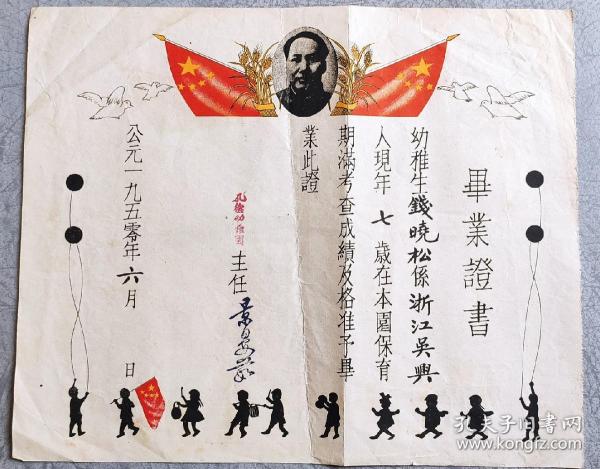 畢業證書
幼稚生錢曉松係浙江吳興
人現年七歲在本園保育
期滿考查成績及格准予畢
業此證
孔德幼稚園
主任
公元一九五零年六月 日
孔夫子旧书网
www.kongfz.com